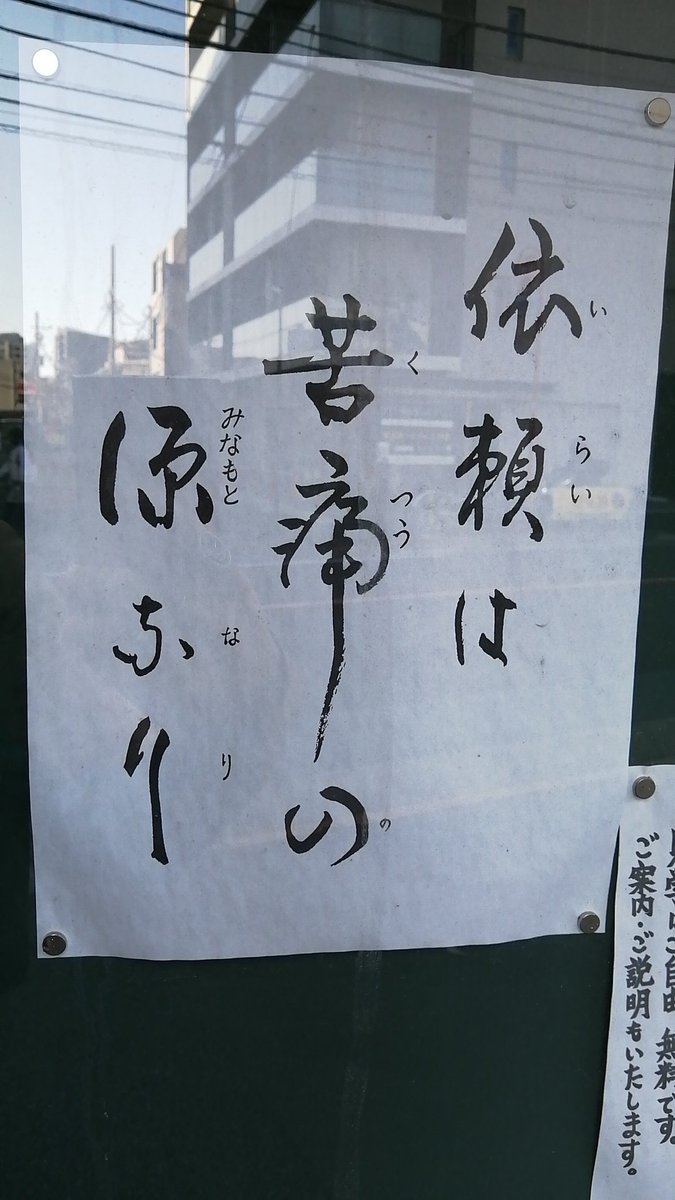 依頼は
いらい
苦痛の
くつうの
源なり
みなもとなり
見学はご自由 無料です。
ご案内・ご説明もいたします。